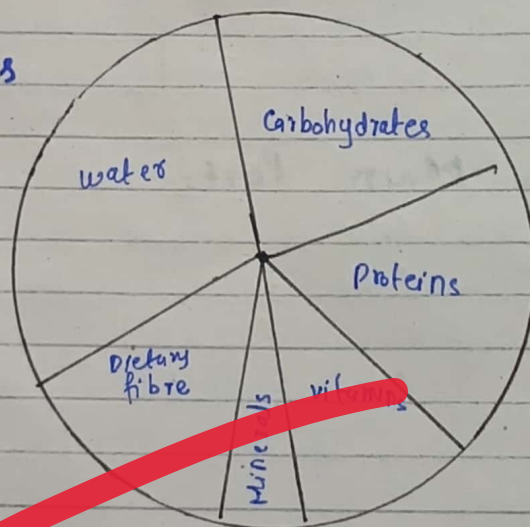 s
Carbohydrates
water
Proteins
Dietary
fibre
Minerals
vitamins